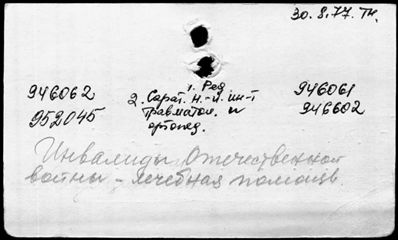 30.8.77. Тк.
1. Ред
946062 2. Сарат. н.-и. ин-т 946061
952045 травматол. и 946602
ортопед.
Инвалиды Отечественной
войны - лечебная помощь.